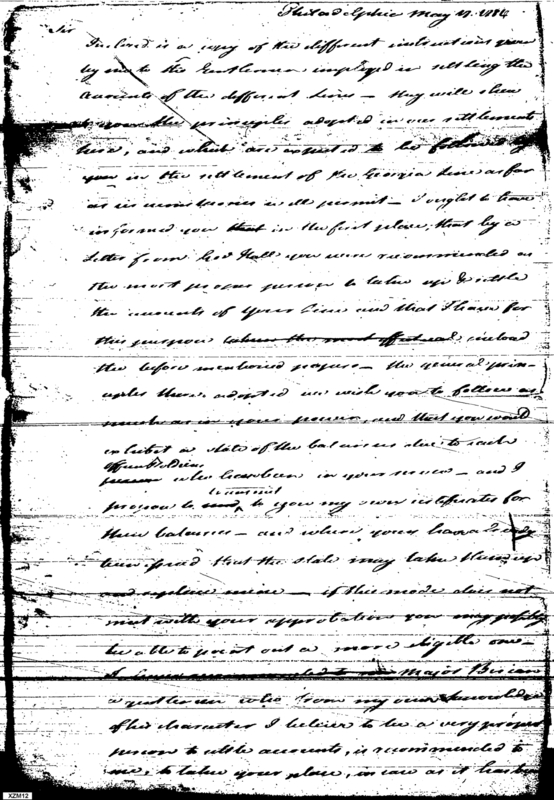 Philadelphia May 11. 1784
Sir
Inclosed is a copy of the different instructions given
by me to the Gentlemen employed in settling the
accounts of the different Lines – they will shew
you the principles adopted in our settlements
here, and which are expected to be followed by
you in the settlement of the Georgia Line as far
as circumstances will permit – I ought to have
informed you that in the first place, that by a
Letter from Hall you were recommended as
the most proper person to take up & settle
the accounts of your Line and that I have for
this purpose taken the most effectual inclosed
the before mentioned papers – the general prin-
ciples there adopted we wish you to follow as
much as in your power, and that you would
exhibit a state of the balances due to each
officer & Soldier
person who has been in your service – and I
transmit
propose to send to you my own certificates for
these balances – and where yours have already
been paid that the state may take them up
and replace mine – if this mode does not
meet with your approbation you may possibly
be able to point out a more eligible one –
Major
a gentleman who from my own knowledge
of his character I believe to be a very proper
person to settle accounts, is recommended to
me, to take your place, in case as it has been
XZM12